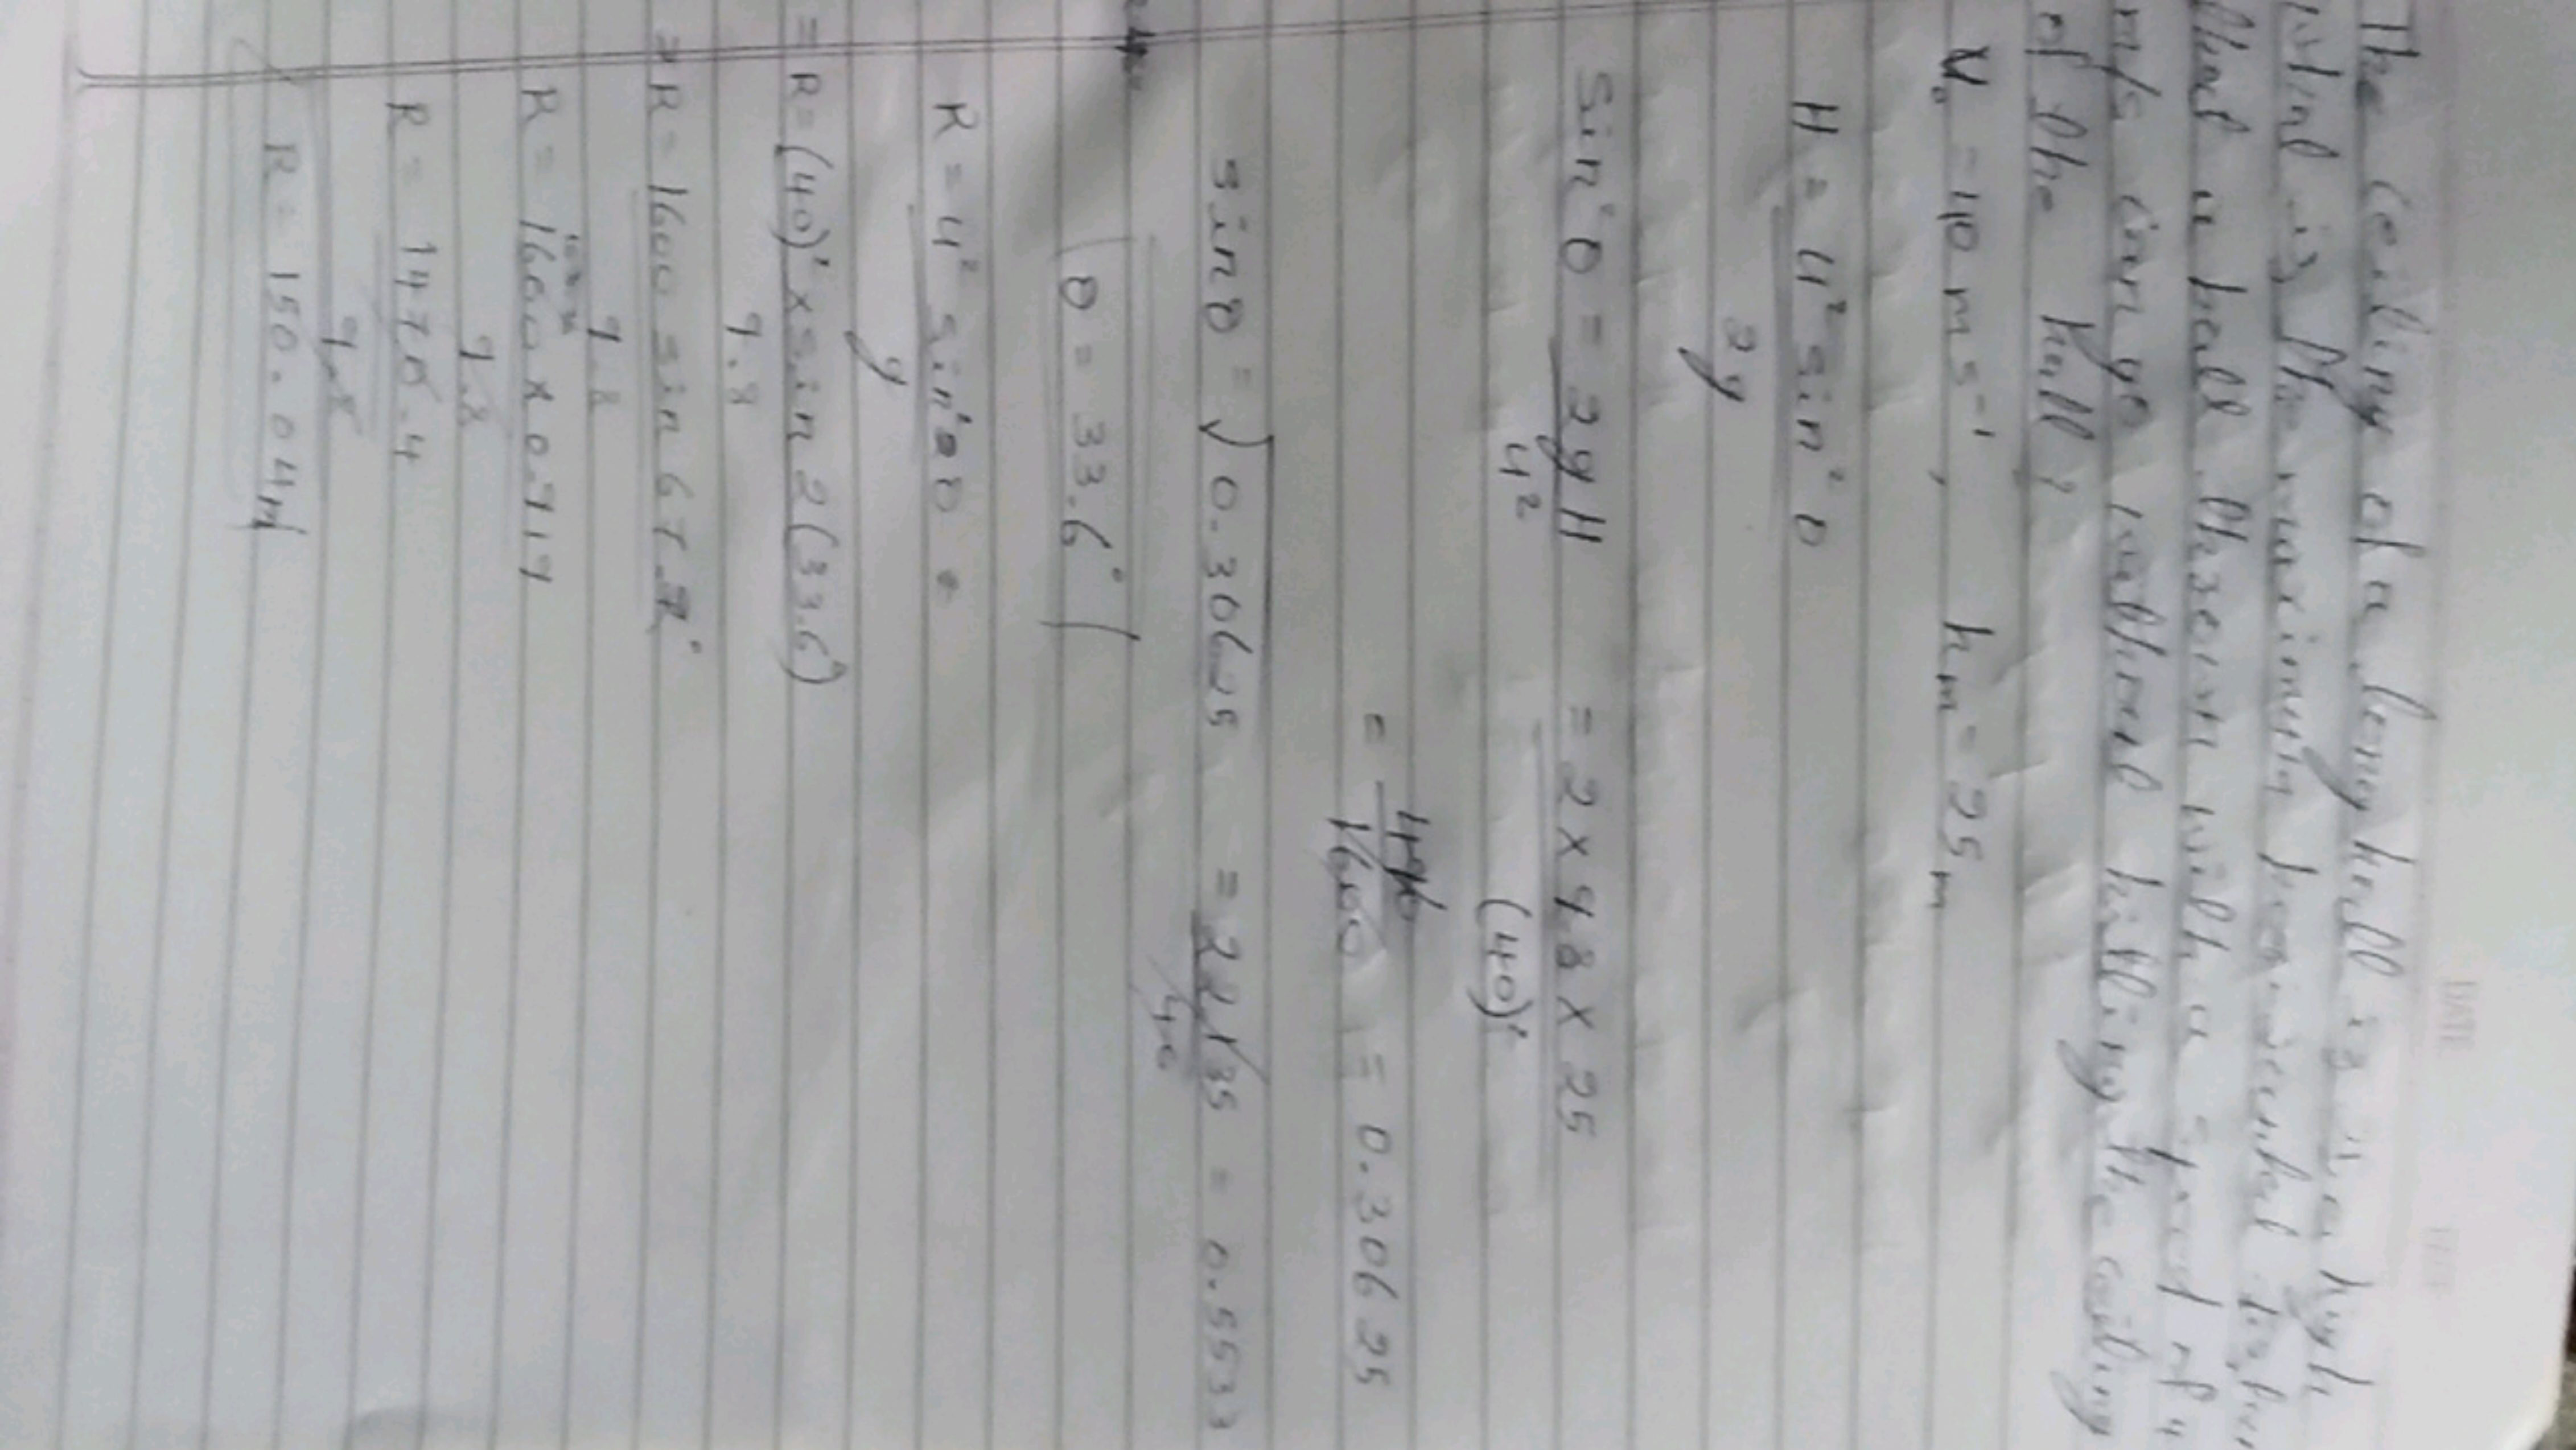 DATE
The ceiling of a long hall is 25 m high
what is the maximum horizontal distan
that a ball thrown with a speed of 4
m/s can go without hitting the ceiling
of the hall?
V₀ = 40 m s⁻¹, hm = 25 m
H = u² sin² θ
2g
Sin² θ = 2gH = 2 × 9.8 × 25
u² (40)²
= 490 = 0.30625
1600
sin θ = √0.30625 = 22.135 = 0.5533
40
θ = 33.6°
R = u² sin² θ =
g
= R = (40)² × sin 2(33.6°)
9.8
R = 1600 sin 67.2°
9.8
R = 1600 × 0.919
9.8
R = 1470.4
9.8
R = 150.04m